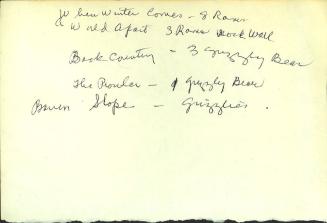 When Winter Comes - 8 Rams
World Apart 3 Rams Rock Wall
Back Country - 3 Grizzly Bear
The Prowler - 1 Grizzly Bear
Slope - Grizzlies.